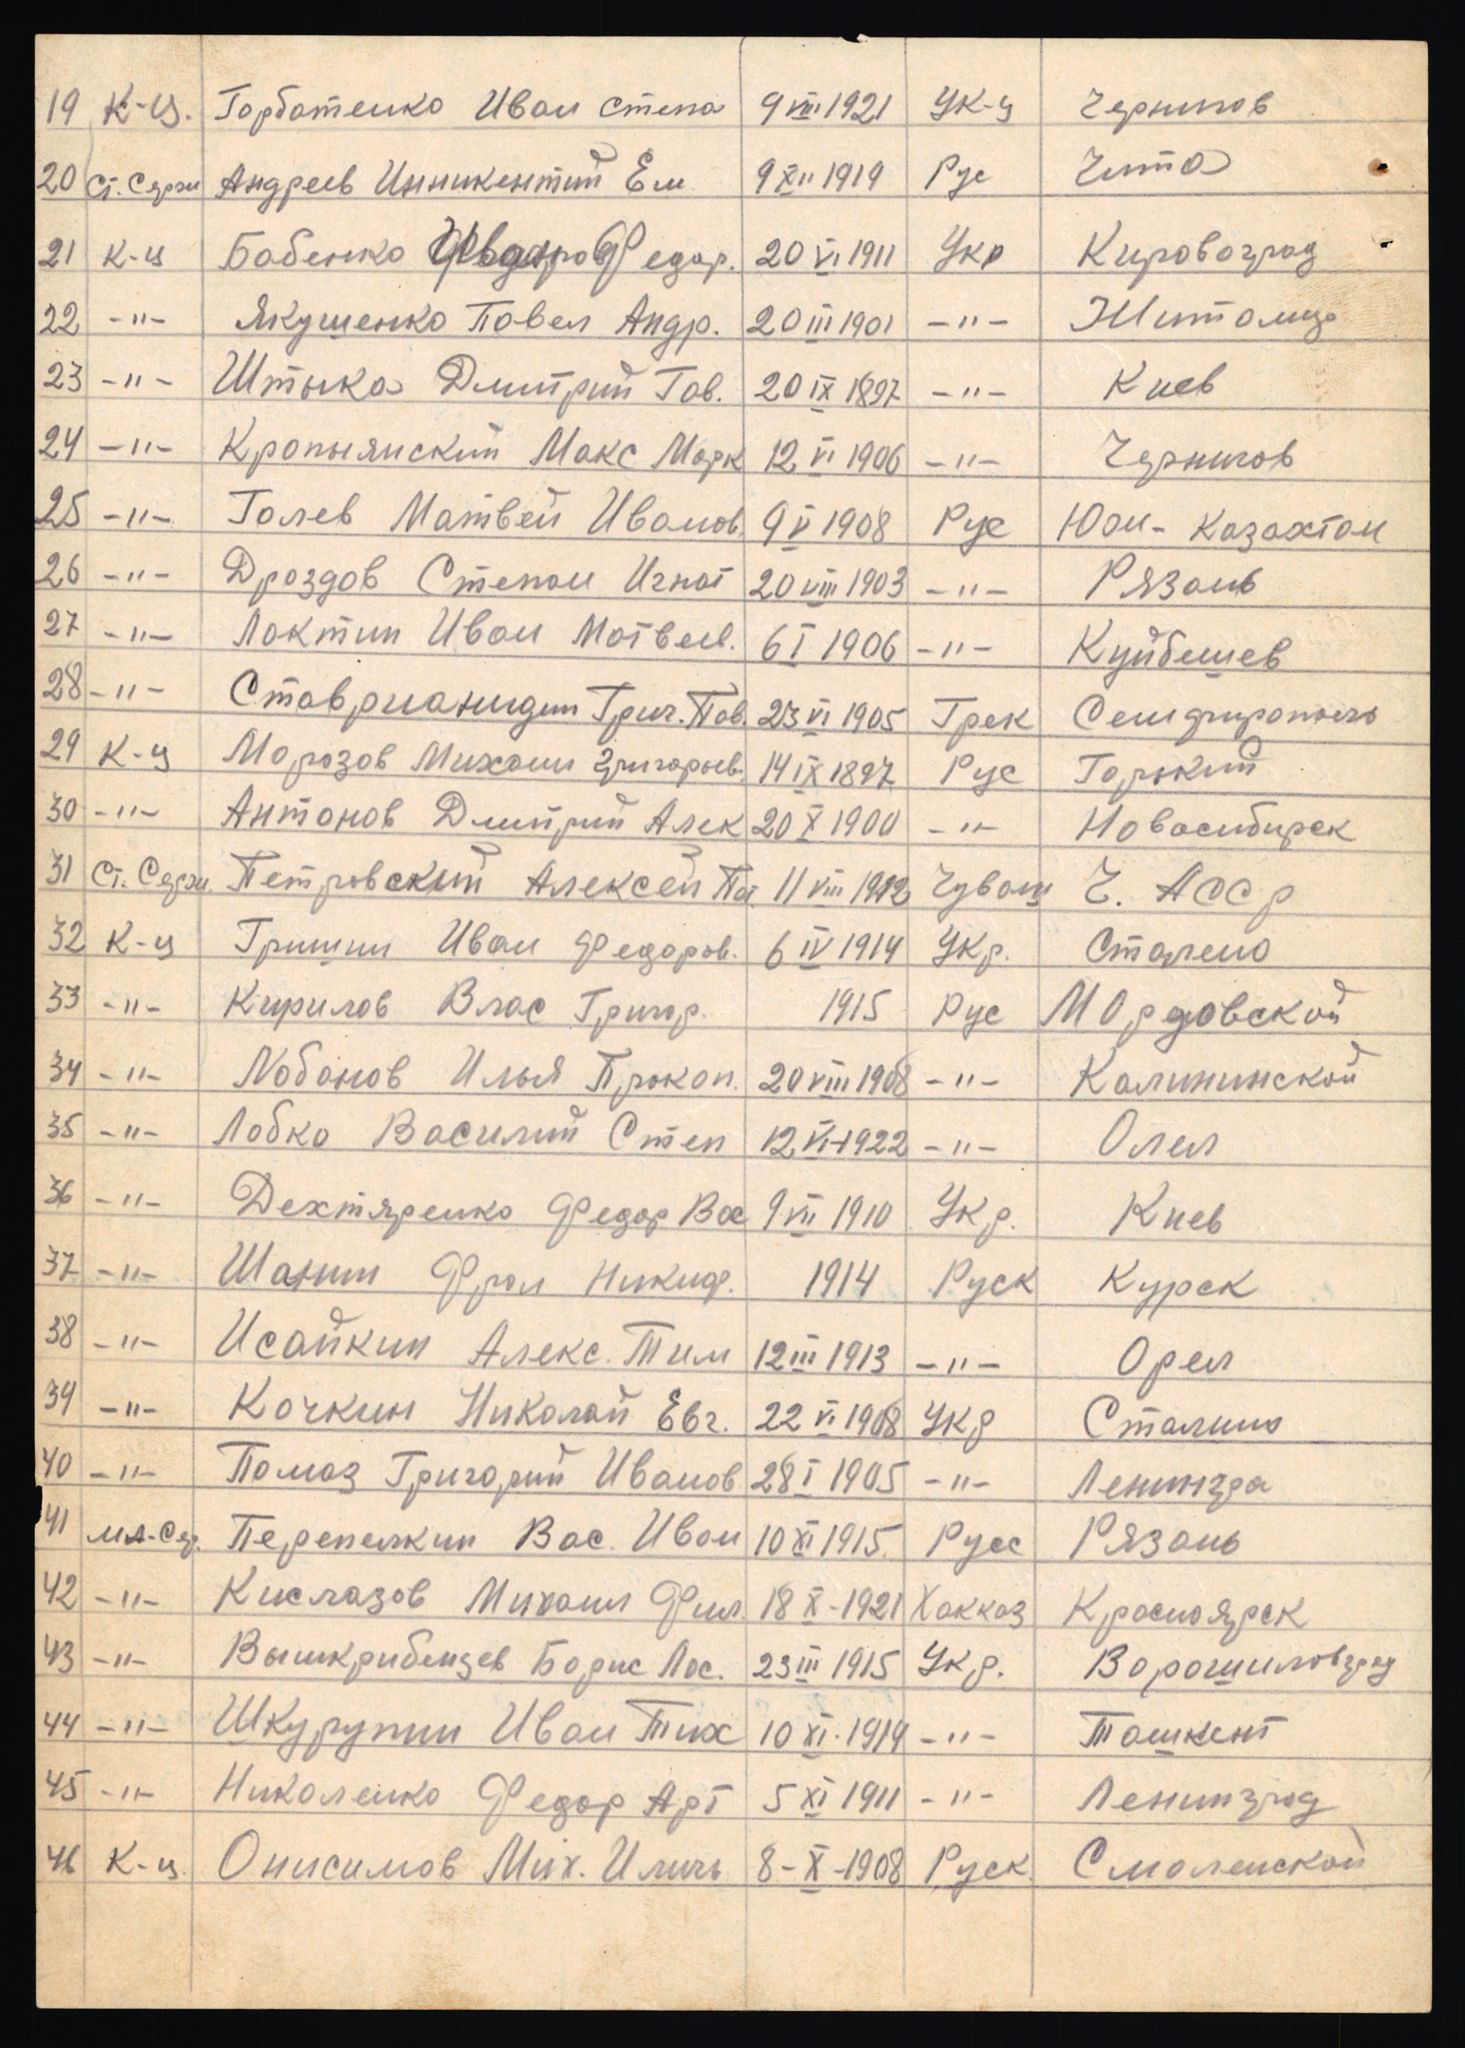 19 К-ц. Горбатенко Иван Степа 9 VIII 1921 Ук-ц Чернигов
20 Ст. Серж Андреев Инникентий Ем 9 XII 1919 Рус Чита
21 К-ц Бабенко Федор. 20 VI 1911 Укр Кировоград
22 -"- Якушенко Павел Андр. 20 III 1901 -"- Житомир
23 -"- Штыка Дмитрий Гав. 20 IX 1897 -"- Киев
24 -"- Кропынянский Макс Марк 12 VI 1906 -"- Чернигов
25 -"- Голев Матвей Иванов. 9 V 1908 Рус Юон- Казахтан
26 -"- Дроздов Степан Игнат 20 VIII 1903 -"- Рязань
27 -"- Лактин Иван Матвеев. 6 I 1906 -"- Куйбешев
28 -"- Ставрианидин Григ. Пав. 23 VI 1905 Грек Семфирополь
29 К-ц Морозов Михаил Григорьев. 14 IX 1897 Рус Горький
30 -"- Антонов Дмитрий Алек 20 X 1900 -"- Новосибирск
31 Ст. Серж. Петровский Алексей Па 11 VIII 1912 Чуваш Ч. АССР
32 К-ц Гришин Иван Федоров. 6 IV 1914 Укр. Сталено
33 -"- Кирилов Влас Григор. 1915 Рус Мордовской
34 -"- Лобанов Илья Прокоп. 20 VIII 1908 -"- Калининской
35 -"- Лобко Василий Степ 12 VI-1922 -"- Олел
36 -"- Дехтяренко Федор Вас 9 VII 1910 Укр. Киев
37 -"- Шанин Фрол Никиф. 1914 Руск Курск
38 -"- Исайкин Алекс. Тим 12 III 1913 -"- Орел
39 -"- Кочкин Николай Евг. 22 VI 1908 Укр Сталино
40 -"- Помаз Григорий Иванов 28 I 1905 -"- Ленингра
41 Мл-Сер. Перепелкин Вас. Иван 10 XI 1915 Русс Рязань
42 -"- Кислазов Михаил Фил. 18 X-1921 Хакказ Красноярск
43 -"- Вышкрибенцев Борис Лос. 23 III 1915 Укр. Ворошиловград
44 -"- Шкурупин Иван Тих 10 XI.1919 -"- Ташкент
45 -"- Николенко Федор Арт 5 XI 1911 -"- Ленинград
46 К-ц. Онисимов Мих. Иличь 8-X-1908 Руск. Смоленской